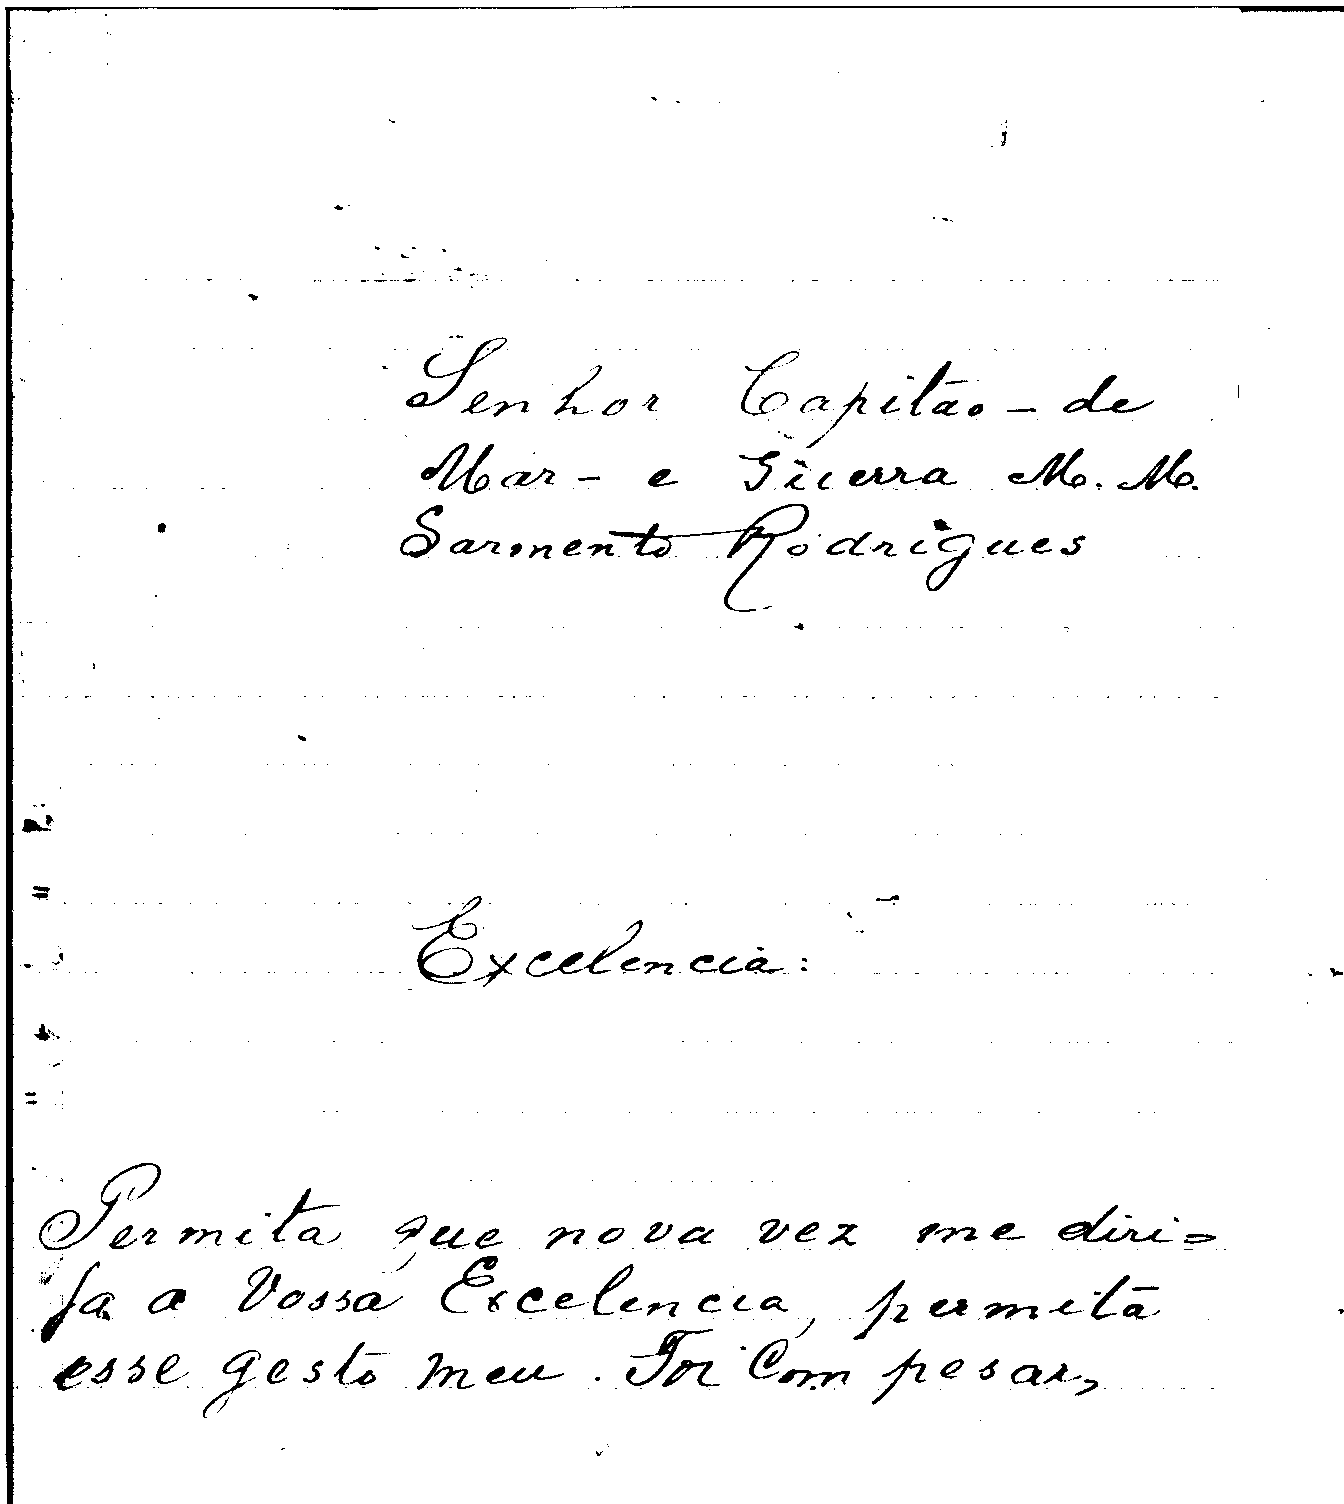 Senhor Capitão - de
Mar - e Guerra M. M.
Sarmento Rodrigues
Excelencia:
Permita que nova vez me diri=
ja a Vossa Excelencia, permita
esse gesto meu. Foi com pesar,